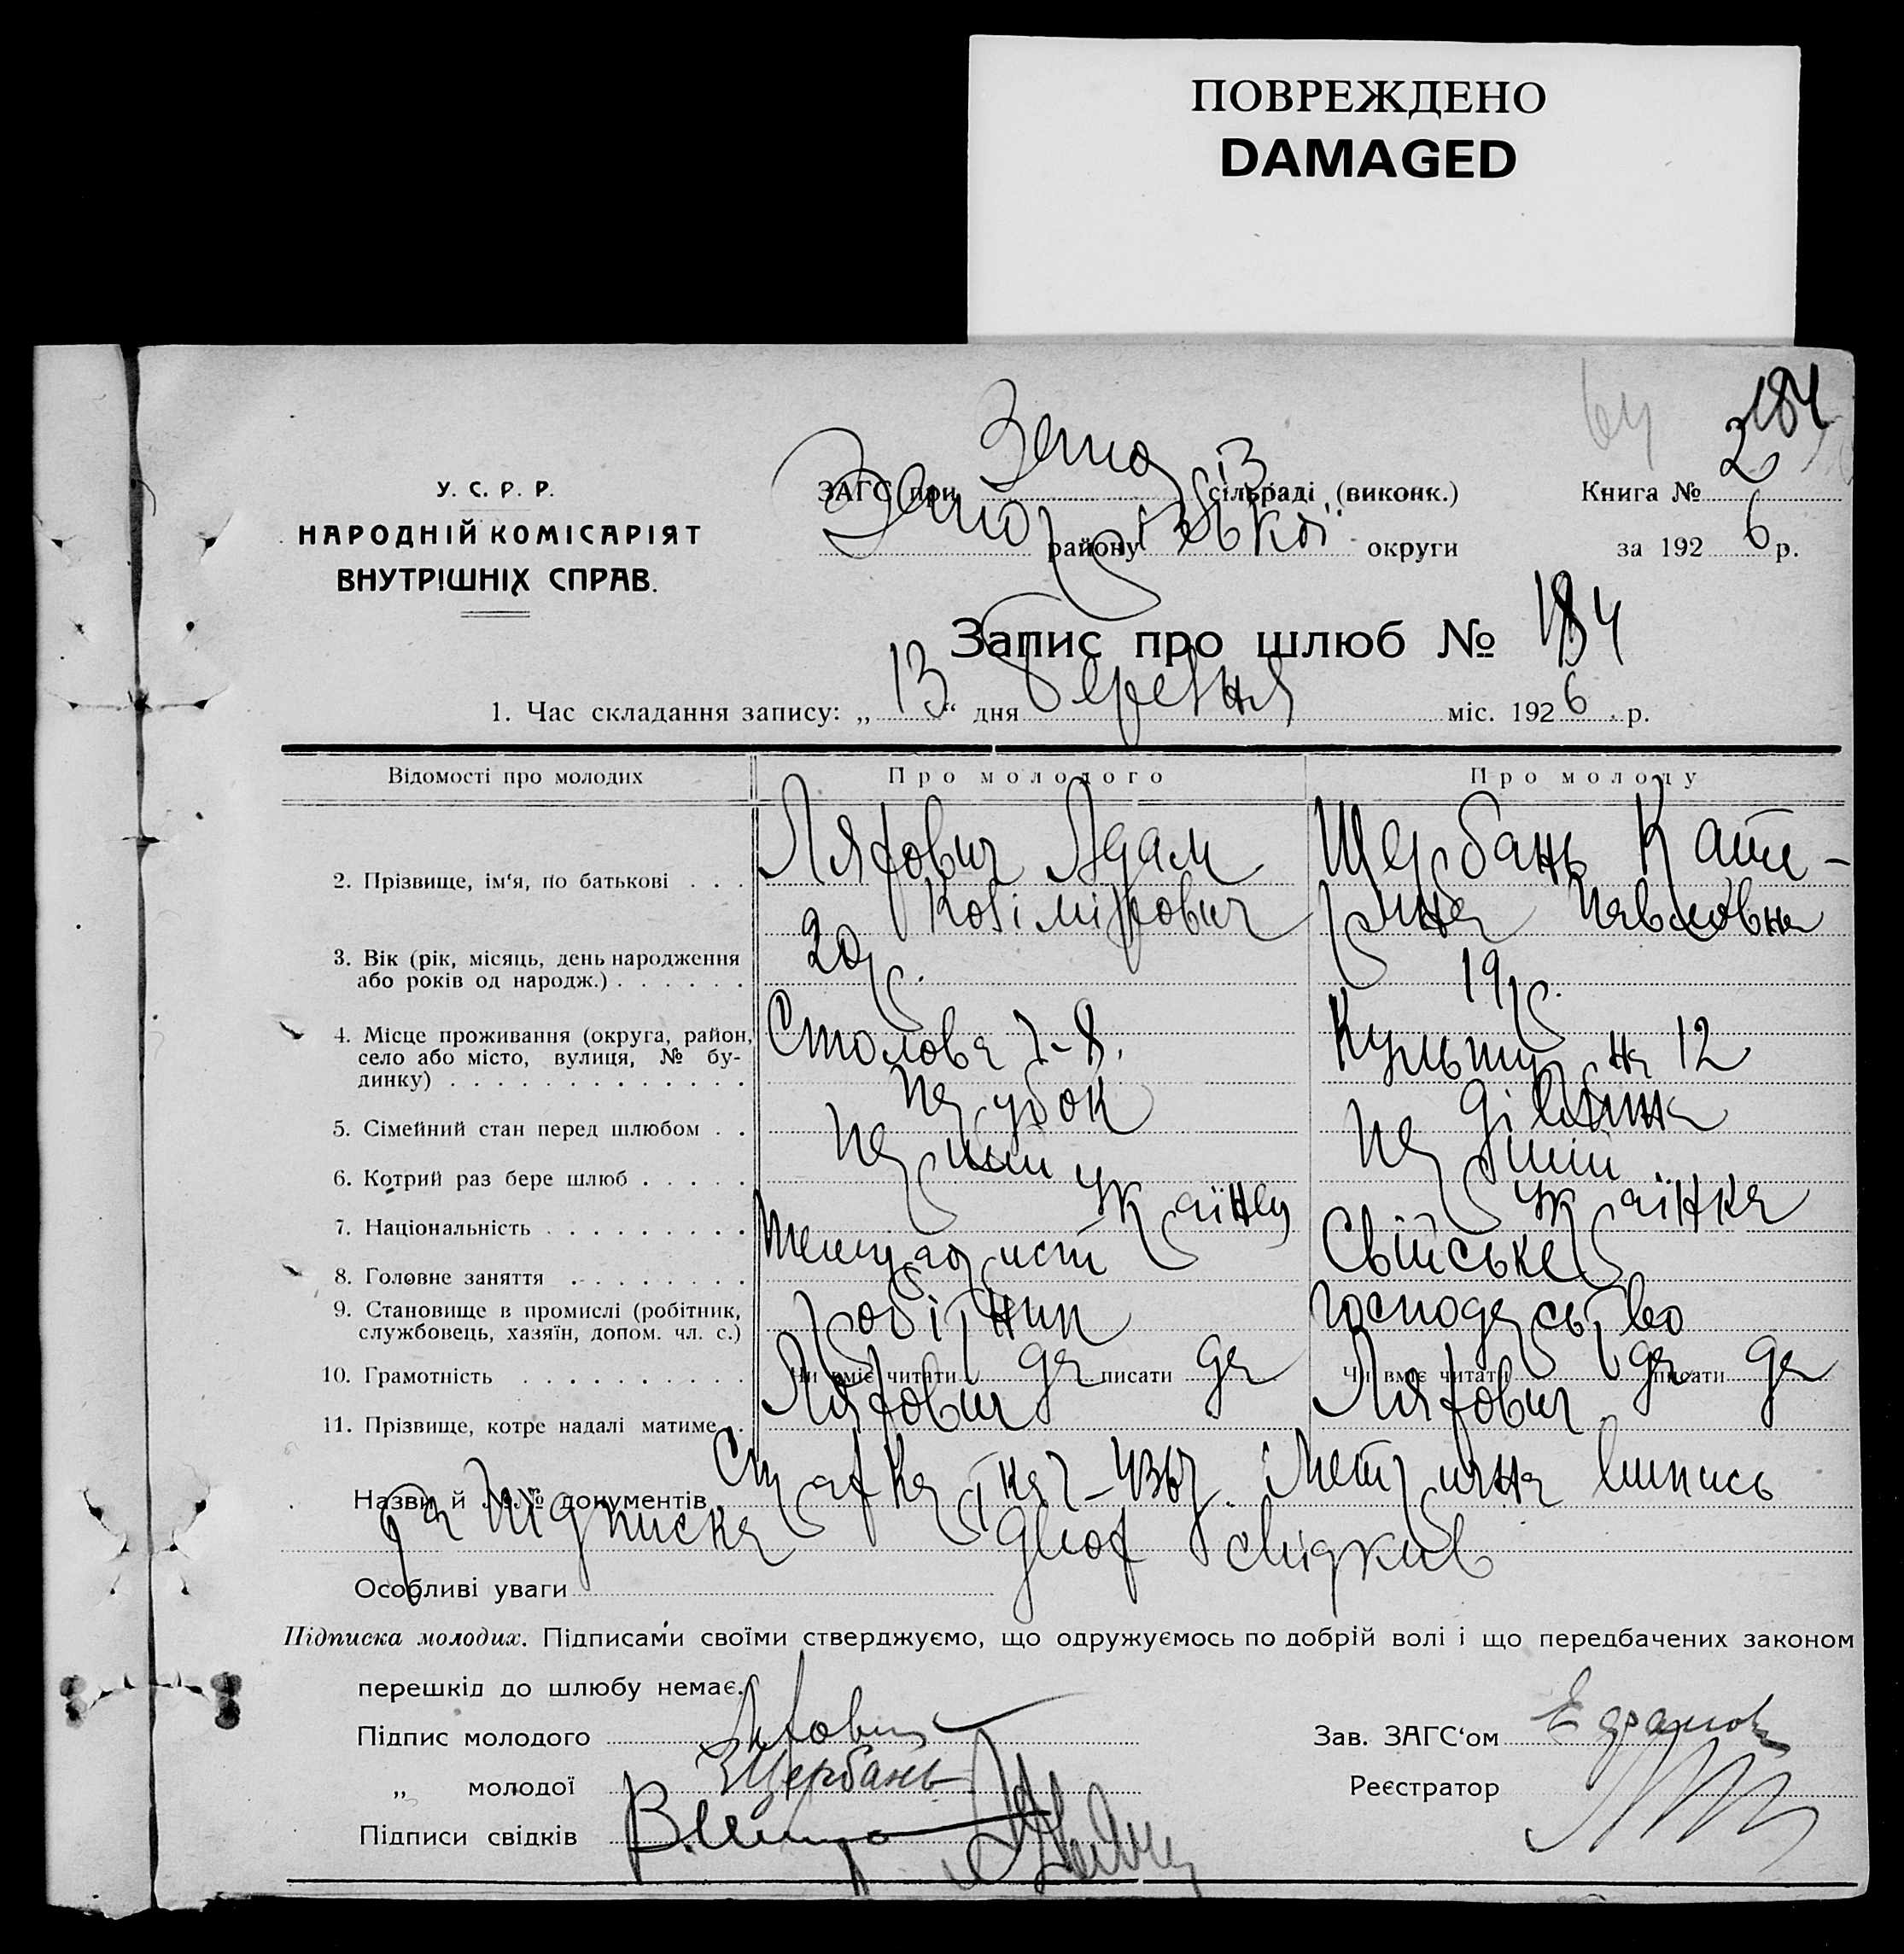 ПОВРЕЖДЕНО
DAMAGED
64
184
2
У. С. Р. Р.
НАРОДНІЙ КОМІСАРІЯТ
ВНУТРІШНІХ СПРАВ.
ЗАГС при Запо сільраді (виконк.)
району округи
Книга №
за 1926 р.
Запис про шлюб № 184
1. Час складання запису: „13“ дня березня міс. 1926 р.
Відомості про молодих
Про молодого
Про молоду
2. Прізвище, ім‘я, по батькові . . .
Ляхович Адам
Козімірович
Щербань Кате-
рина Павловна
3. Вік (рік, місяць, день народження
або років од народж.) . . . . . .
20 р.
19 р.
4. Місце проживання (округа, район,
село або місто, вулиця, № бу-
динку) . . . . . . . . . . . . .
Столова 7-8.
Культурна 12
5. Сімейний стан перед шлюбом . .
парубок
дівчина
6. Котрий раз бере шлюб . . . . .
перший
перший
7. Національність . . . . . . . . .
українец
українка
8. Головне заняття . . . . . . . .
Свійське
9. Становище в промислі (робітник,
службовець, хазяїн, допом. чл. с.)
робітник
господарство
10. Грамотність . . . . . . . . . .
Чи вміє читати да писати да
Чи вміє читати да писати да
11. Прізвище, котре надалі матиме . .
Ляхович
Ляхович
Назви й №№ документів Метрична випись
та підписка двох свідків
Особливі уваги
Підписка молодих. Підписами своїми стверджуємо, що одружуємось по добрій волі і що передбачених законом
перешкід до шлюбу немає.
Підпис молодого
Зав. ЗАГС‘ом
„ молодої Щербань
Реєстратор
Підписи свідків